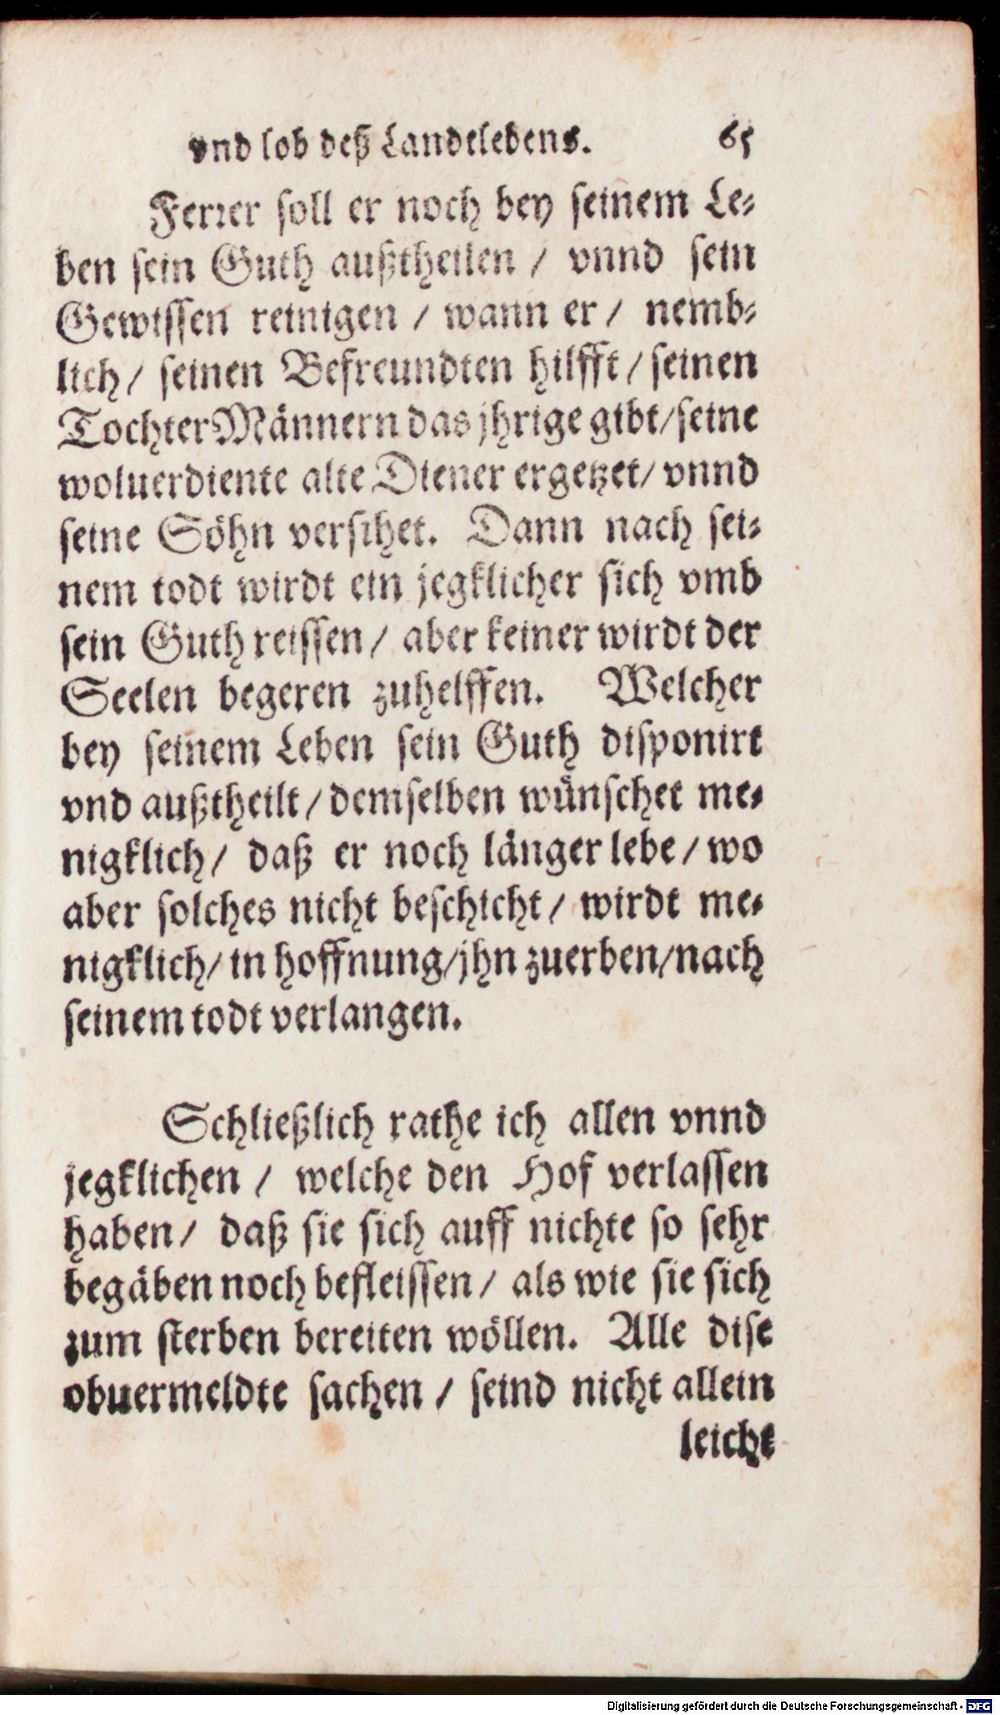 vnd lob deß Landtlebens. 65
Ferrer soll er noch bey seinem Le-
ben sein Guth außtheilen / vnnd sein
Gewissen reinigen / wann er / nemb-
lich / seinen Befreundten hilfft / seinen
TochterMännern das jhrige gibt / seine
woluerdiente alte Diener ergetzet / vnnd
seine Söhn versihet. Dann nach sei-
nem todt wirdt ein jegklicher sich vmb
sein Guth reissen / aber keiner wirdt der
Seelen begeren zuhelffen. Welcher
bey seinem Leben sein Guth disponirt
vnd außtheilt / demselben wünschet me-
nigklich / daß er noch länger lebe / wo
aber solches nicht beschicht / wirdt me-
nigklich / in hoffnung / jhn zuerben / nach
seinem todt verlangen.
Schließlich rathe ich allen vnnd
jegklichen / welche den Hof verlassen
haben / daß sie sich auff nichte so sehr
begäben noch befleissen / als wie sie sich
zum sterben bereiten wöllen. Alle dise
obuermeldte sachen / seind nicht allein
leicht
Digitalisierung gefördert durch die Deutsche Forschungsgemeinschaft - DFG